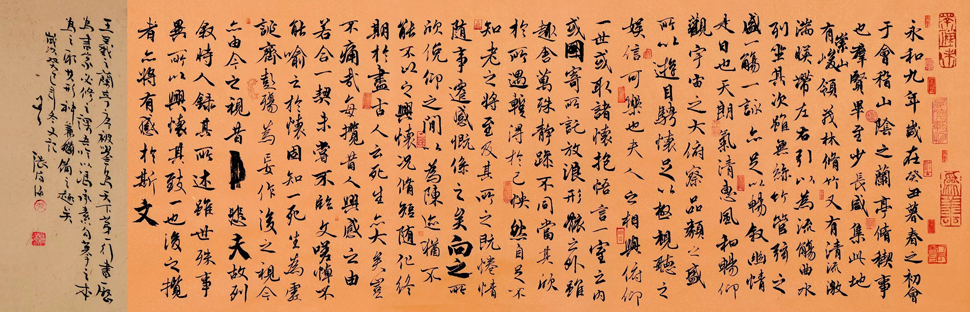 永和九年歲在癸丑暮春之初會
于會稽山陰之蘭亭脩稧事
也羣賢畢至少長咸集此地
有崇山峻領茂林脩竹又有清流激
湍暎帶左右引以為流觴曲水
列坐其次雖無絲竹管弦之
盛一觴一詠亦足以暢叙幽情
是日也天朗氣清惠風和暢仰
觀宇宙之大俯察品類之盛
所以遊目騁懷足以極視聽之
娛信可樂也夫人之相與俯仰
一世或取諸懷抱悟言一室之內
或因寄所託放浪形骸之外雖
趣舍萬殊靜躁不同當其欣
於所遇暫得於己怏然自足不
知老之將至及其所之既惓情
隨事遷感慨係之矣向之所
欣俛仰之閒以為陳迹猶不
能不以之興懷況脩短隨化終
期於盡古人云死生亦大矣豈
不痛哉每攬昔人興感之由
若合一契未嘗不臨文嗟悼不
能喻之於懷固知一死生為虛
誕齊彭殤為妄作後之視今
亦由今之視昔悲夫故列
叙時人錄其所述雖世殊事
異所以興懷其致一也後之攬
者亦將有感於斯文
王羲之蘭亭序被譽為天下第一行書歷
為書家必修之課吾以馮承素摹之本
為之求其形神兼備
歲次癸巳年冬